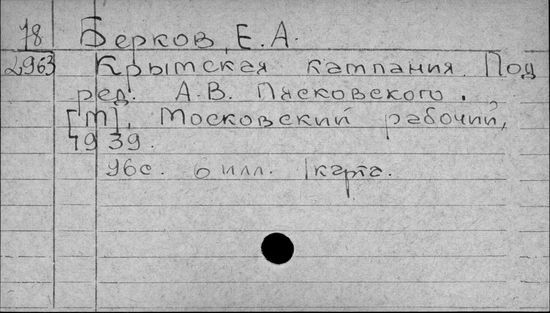 78 Берков, Е.А.
2963 Крымская кампания. Под
ред. А.В. Пясковского.
[М], Московский рабочий,
1939.
96с. 6 илл. 1карта.